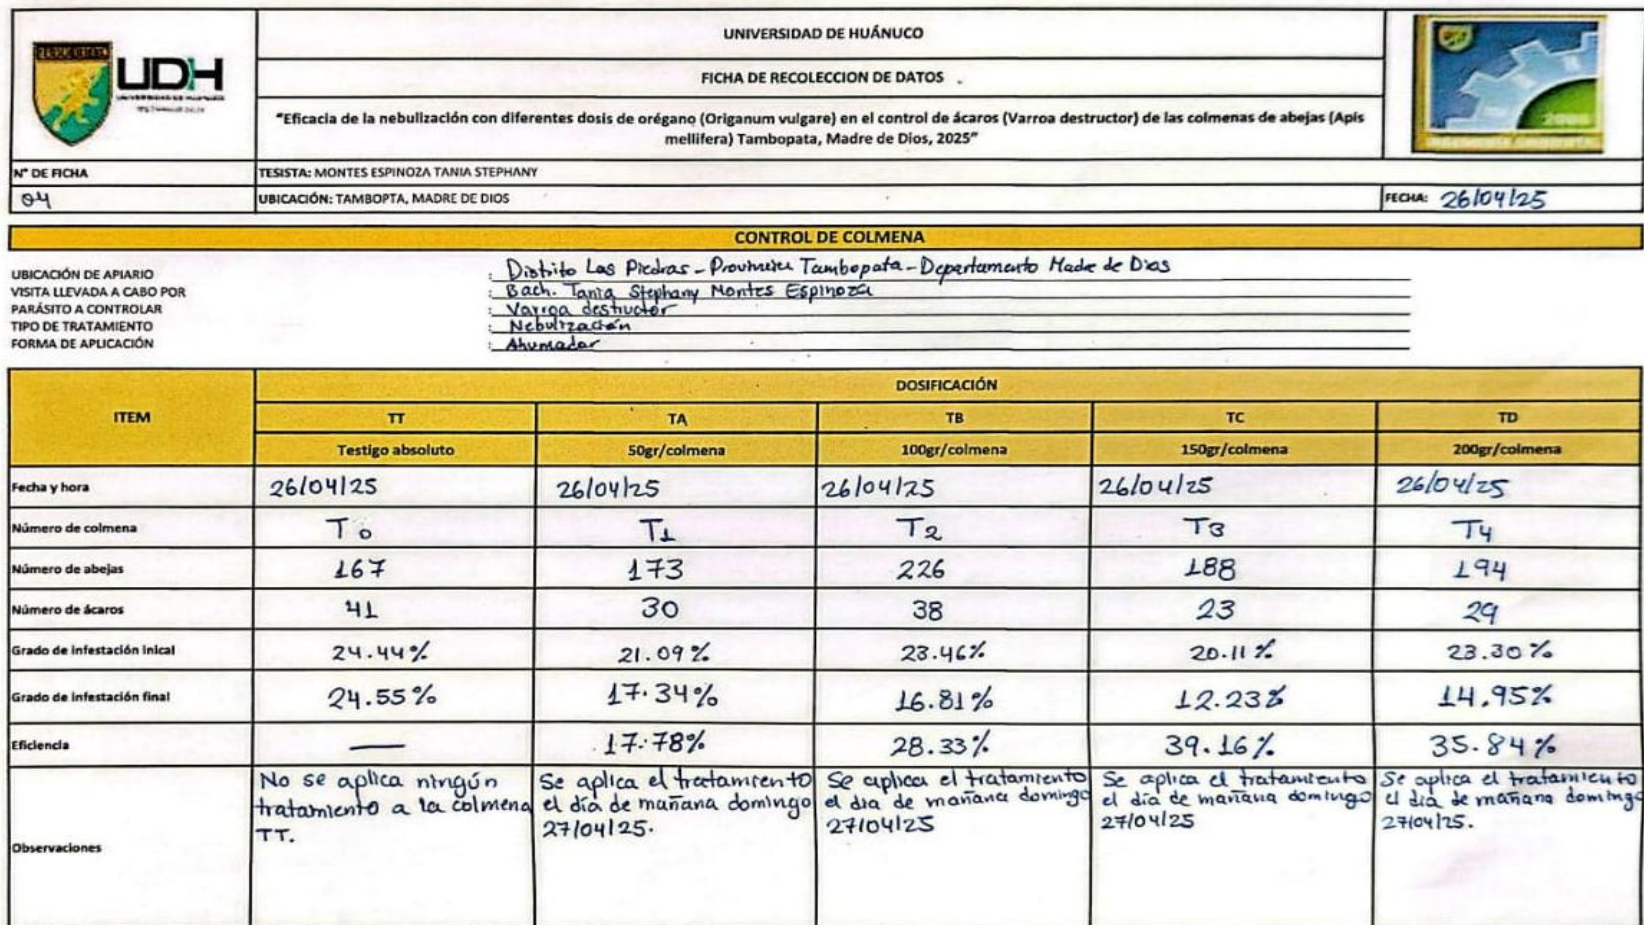 UNIVERSIDAD DE HUÁNUCO
FICHA DE RECOLECCION DE DATOS
UDH
UNIVERSIDAD DE HUANUCO
"Eficacia de la nebulización con diferentes dosis de orégano (Origanum vulgare) en el control de ácaros (Varroa destructor) de las colmenas de abejas (Apis
mellifera) Tambopata, Madre de Dios, 2025"
N° DE FICHA
TESISTA: MONTES ESPINOZA TANIA STEPHANY
04
UBICACIÓN: TAMBOPTA, MADRE DE DIOS
FECHA: 26/04/25
CONTROL DE COLMENA
UBICACIÓN DE APIARIO : Distrito Las Piedras - Provincia Tambopata - Departamento Madre de Dios
VISITA LLEVADA A CABO POR : Bach. Tania Stephany Montes Espinoza
PARÁSITO A CONTROLAR : Varroa destructor
TIPO DE TRATAMIENTO : Nebulización
FORMA DE APLICACIÓN : Ahumador
DOSIFICACIÓN
ITEM TT TA TB TC TD
Testigo absoluto 50gr/colmena 100gr/colmena 150gr/colmena 200gr/colmena
Fecha y hora 26/04/25 26/04/25 26/04/25 26/04/25 26/04/25
Número de colmena T0 T1 T2 T3 T4
Número de abejas 167 173 226 188 194
Número de ácaros 41 30 38 23 29
Grado de infestación inical 24.44% 21.09% 23.46% 20.11% 23.30%
Grado de infestación final 24.55% 17.34% 16.81% 12.23% 14.95%
Eficiencia — 17.78% 28.33% 39.16% 35.84%
Observaciones
No se aplica ningún
tratamiento a la colmena
TT.
Se aplica el tratamiento
el día de mañana domingo
27/04/25.
Se aplica el tratamiento
el dia de mañana domingo
27/04/25
Se aplica el tratamiento
el día de mañana domingo
27/04/25
Se aplica el tratamiento
el dia de mañana domingo
27/04/25.